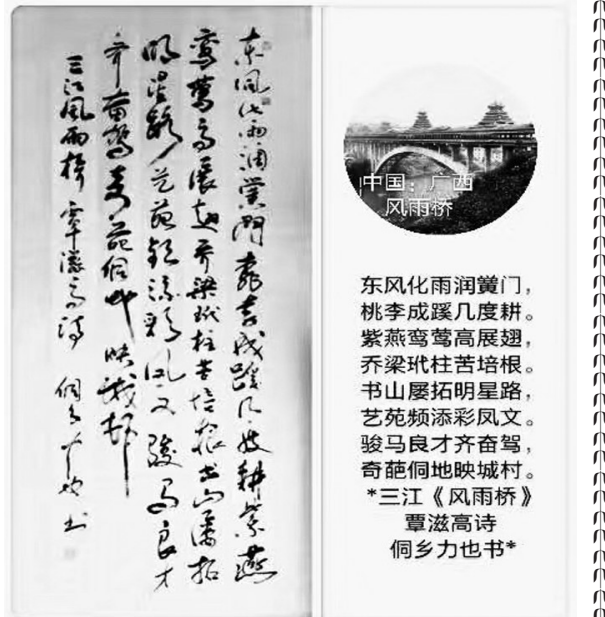 东风化雨润黉门桃李成蹊几度耕紫燕
鸾莺高展翅乔梁玳柱苦培根书山屡拓
明星路艺苑频添彩凤文骏马良才
齐奋驾奇葩侗地映城村
三江风雨桥 覃滋高诗 侗乡力也书
中国:广西
风雨桥
东风化雨润黉门，
桃李成蹊几度耕。
紫燕鸾莺高展翅，
乔梁玳柱苦培根。
书山屡拓明星路，
艺苑频添彩凤文。
骏马良才齐奋驾，
奇葩侗地映城村。
*三江《风雨桥》
覃滋高诗
侗乡力也书*